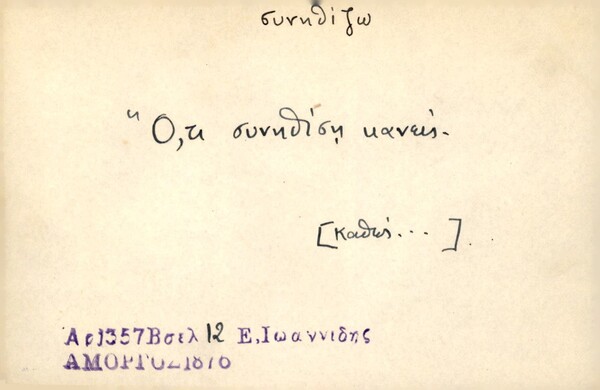 συνηθίζω
"Ό,τι συνηθίση κανείς.
[καθώς...].
Αρ)357Βσελ 12 Ε,Ιωαννιδης
ΑΜΟΡΓΟΣ1876